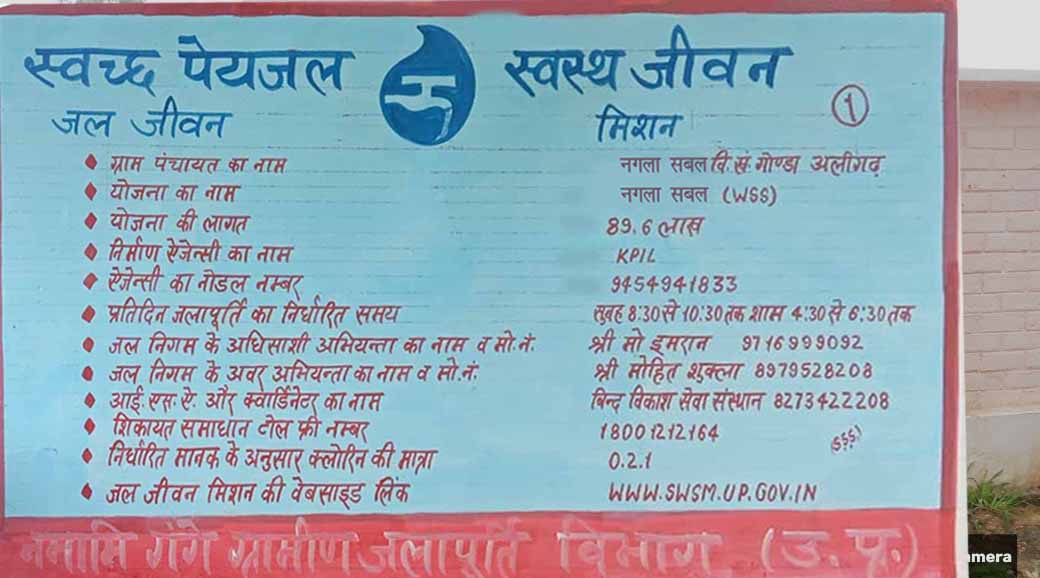 स्वच्छ पेयजल स्वस्थ जीवन
जल जीवन मिशन १
ग्राम पंचायत का नाम नगला सबल वि.खं. गोण्डा अलीगढ़
योजना का नाम नगला सबल (WSS)
योजना की लागत 89.6 लाख
निर्माण ऐजेन्सी का नाम KPIL
ऐजेन्सी का नोडल नम्बर 9454941833
प्रतिदिन जलापूर्ति का निर्धारित समय सुबह 8:30 से 10:30 तक शाम 4:30 से 6:30 तक
जल निगम के अधिसाशी अभियन्ता का नाम व मो.नं. श्री मो इमरान 9716999092
जल निगम के अवर अभियन्ता का नाम व मो.नं. श्री मोहित शुक्ला 8979528208
आई.एस.ऐ. और क्वार्डिनेटर का नाम बिन्द विकाश सेवा संस्थान 8273422208
शिकायत समाधान टोल फ्री नम्बर 18001212164
निर्धारित मानक के अनुसार क्लोरिन की मात्रा 0.2.1
जल जीवन मिशन की वेबसाइड लिंक WWW.SWSM.UP.GOV.IN
नमामि गंगे ग्रामीण जलापूर्ति विभाग (उ.प्र.)